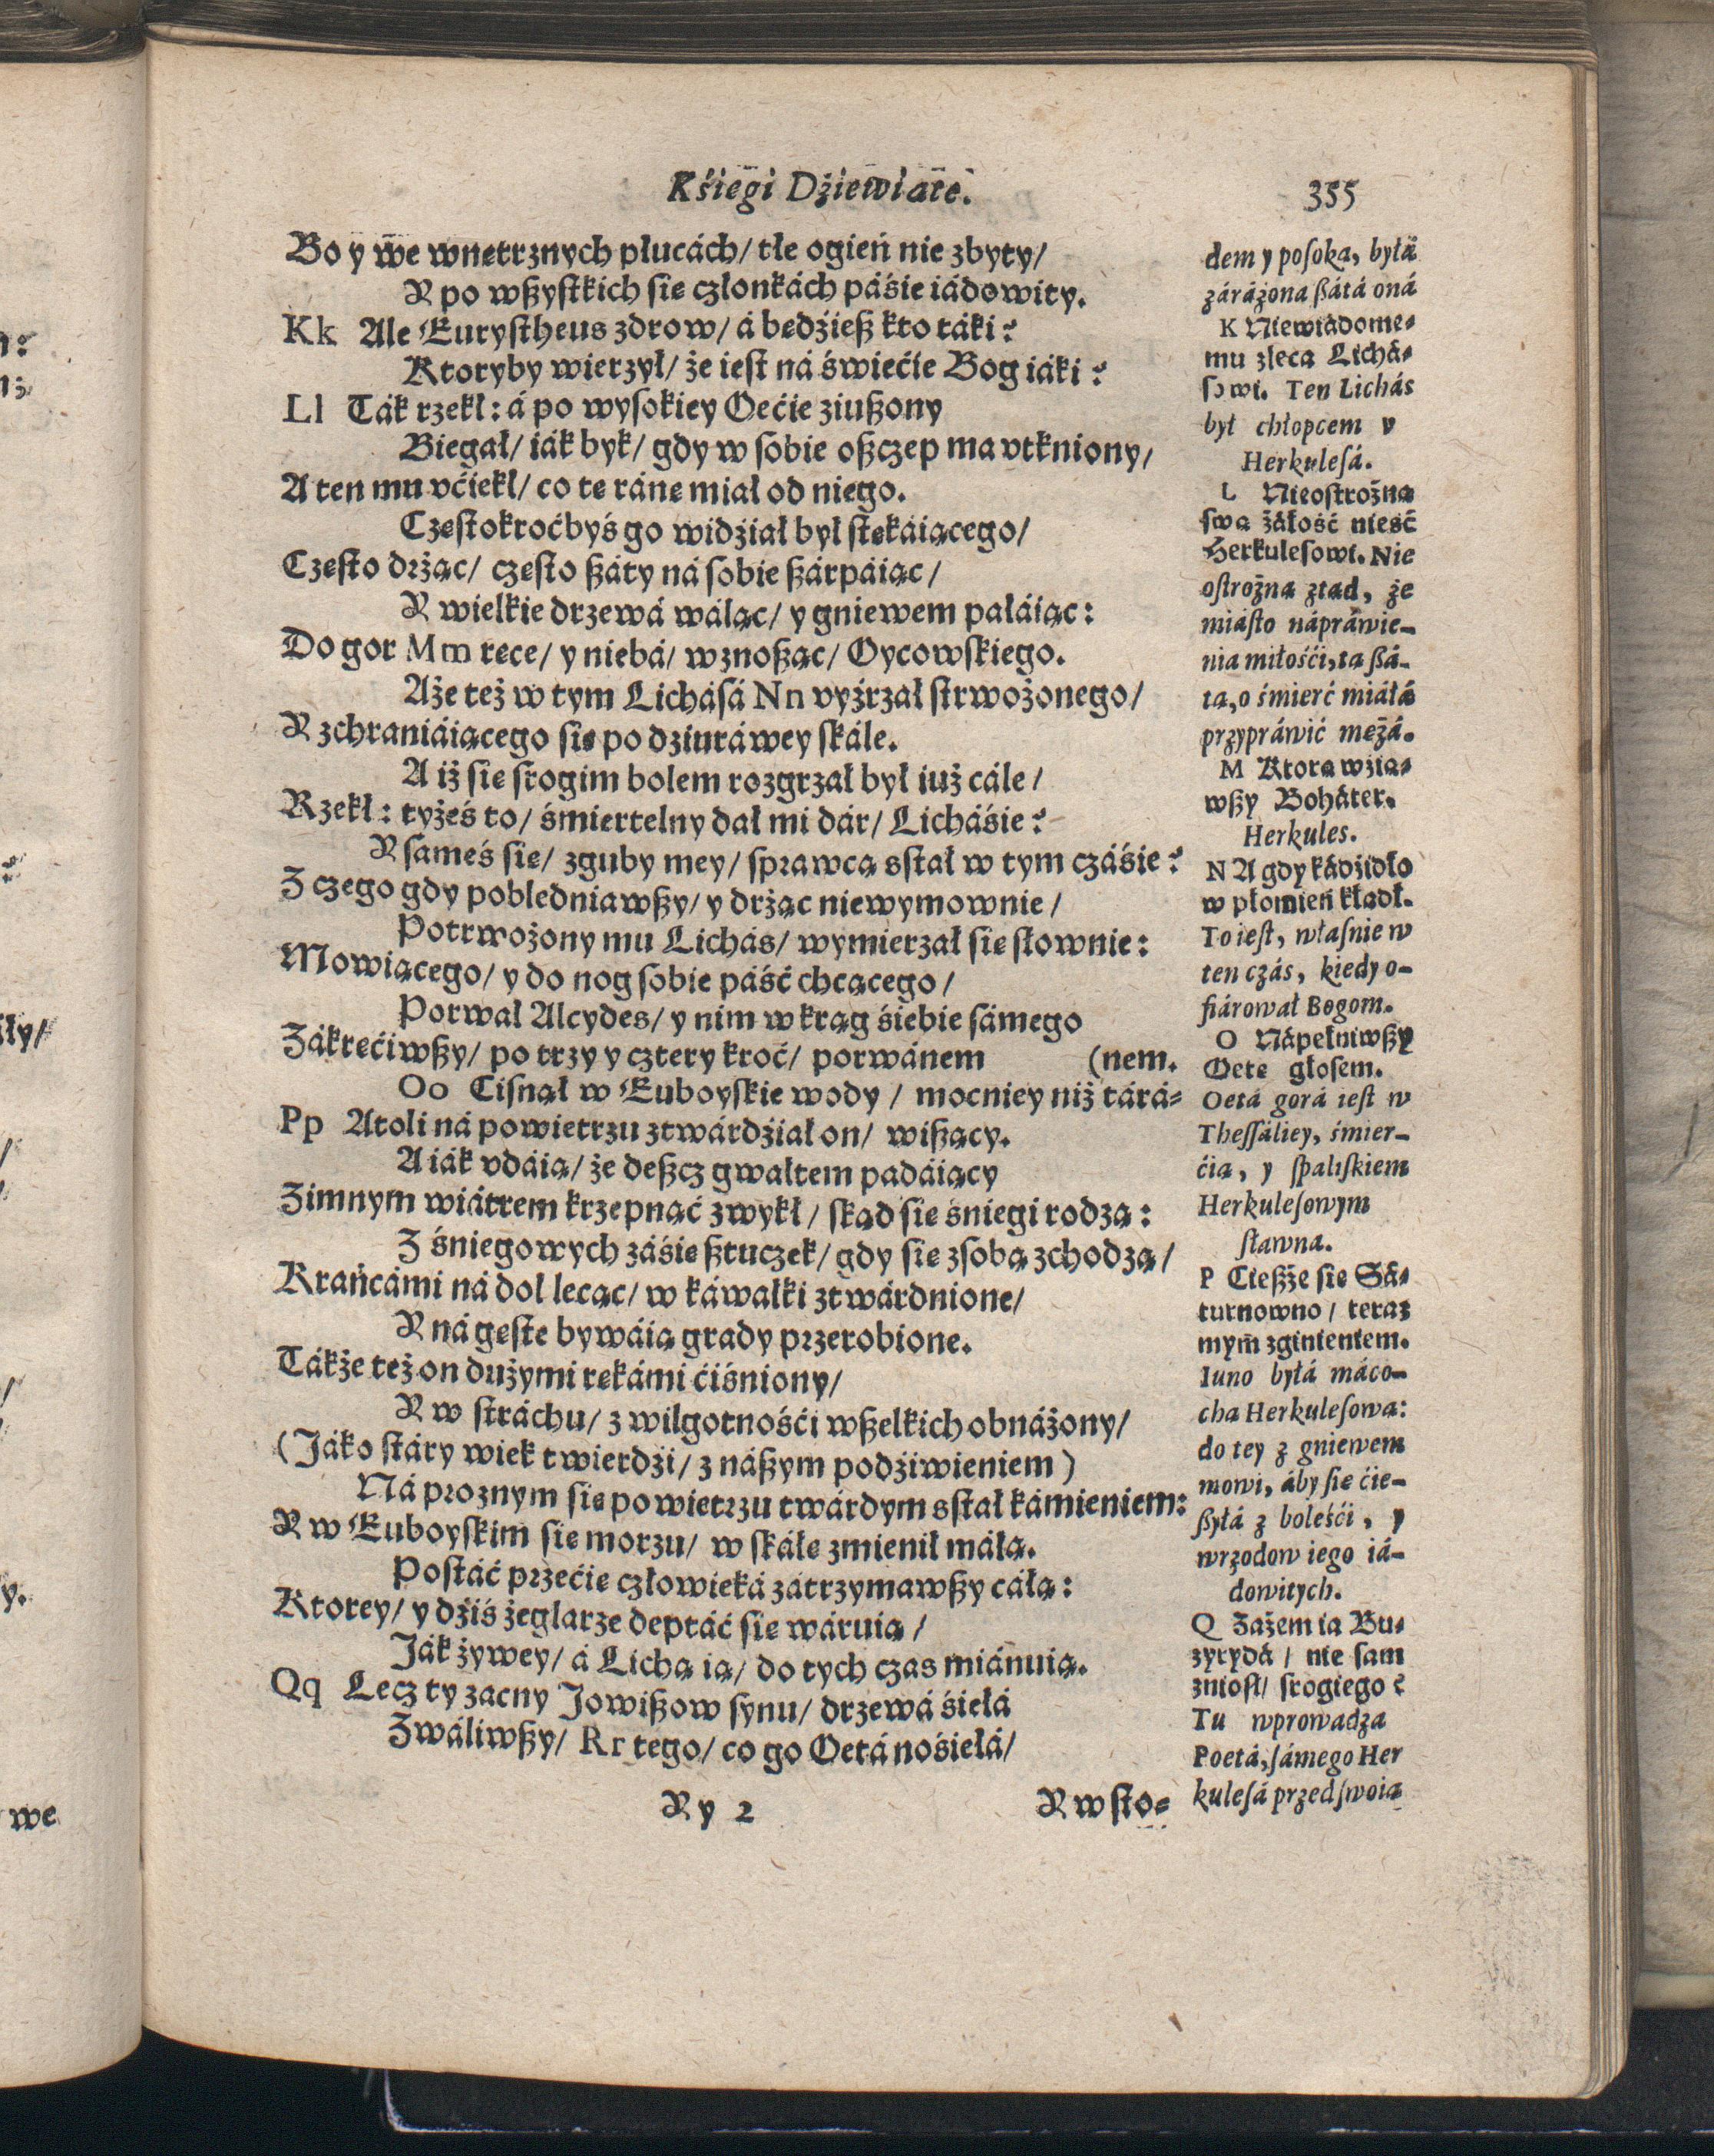 Kśięgi Dźiewiąte.
355
Bo y we wnętrznych płucách/ tłe ogień nie zbyty/
Y po wßyſtkich ſie członkách páśie iádowity.
Kk Ale Euryſtheus zdrow/ á będźieß kto táki?
Ktoryby wierzył/ że ieſt ná świećie Bog iáki?
Ll Ták rzekł: á po wyſokiey Oećie ziußony
Biegał/ iák byk/ gdy w ſobie oßczep ma vtkniony/
A ten mu vćiekł/ co te ráne miał od niego.
Częſtokroćbyś go widźiał był ſtękáiącego/
Częſto drżąc/ częſto ßáty ná ſobie ßárpáiąc/
Y wielkie drzewá wáląc/ y gniewem pałáiąc:
Do gor Mm ręce/ y niebá/ wznoßąc/ Oycowſkiego.
Aże też w tym Licháſá Nn vyźrzał ſtrwożonego/
Y zchraniáiącego ſię po dziuráwey ſkále.
A iż ſie ſrogim bolem rozgrzał był iuż cále/
Rzekł: tyżeś to/ śmiertelny dał mi dár/ Licháśie?
Y ſameś ſie/ zguby mey/ ſprawcą sſtał w tym czáśie?
Z czego gdy pobledniawßy/ y drżąc niewymownie/
Potrwożony mu Lichás/ wymierzał ſie ſłownie:
Mowiącego/ y do nog ſobie páść chcącego/
Porwał Alcydes/ y nim w krąg śiebie ſámego
Zákręćiwßy/ po trzy y cztery kroć/ porwánem (nem.
Oo Ciſnął w Euboyſkie wody/ mocniey niż tárá-
Pp Atoli ná powietrzu ztwárdźiał on/ wißący.
A iák vdáią/ że deßcz gwałtem padáiący
Zimnym wiátrem krzepnąć zwykł/ ſkąd ſie śniegi rodzą:
Z śniegowych záśię ßtuczek/ gdy ſie zſobą zchodzą/
Kráńcámi ná doł lecąc/ w káwałki ztwárdnione/
Y ná gęſte bywáią grady przerobione.
Tákże też on dużymi rękámi ćiśniony/
Y w ſtráchu/ z wilgotnośći wßelkich obnáżony/
(Jáko ſtáry wiek twierdźi/ z náßym podźiwieniem)
Ná prożnym ſię powietrzu twárdym sſtał kámieniem:
Y w Euboyſkim ſie morzu/ w ſkáłę zmienił máłą.
Poſtáć przećie człowieká zátrzymawßy cáłą:
Ktorey/ y dźiś żeglarze deptáć ſie wáruią/
Ják żywey/ á Lichą ią/ do tych czas miánuią.
Qq Lecz ty zacny Jowißow ſynu/ drzewá śiełá
Zwáliwßy/ Rr tego/ co go Oetá nośiełá/
Yy 2
Y w ſto-
dem y poſoką, byłá
záráżona ßátá oná
K Niewiádome-
mu zleca Lichá-
ſowi. Ten Lichás
był chłopcem v
Herkuleſá.
L Nieoſtrożna
ſwą żáłość nieść
Herkuleſowi. Nie
oſtrożna ztąd, że
miáſto nápráwie-
nia miłośći, ta ßá-
ta, o śmierć miáłá
przypráwić mężá.
M Ktorą wźią-
wßy Boháter.
Herkules.
N A gdy kádźidło
w płomień kłádł.
To ieſt, właſnie w
ten czás, kiedy o-
fiárował Bogom.
O Nápełniwßy
Oetę głoſem.
Oetá gorá ieſt w
Theſſáliey, śmier-
ćią, y ſpaliſkiem
Herkuleſowym
ſławna.
P Cießże ſie Sá-
turnowno/ teraz
mym zginieniem.
Iuno byłá máco-
chą Herkuleſową:
do tey z gniewem
mowi, áby ſie ćie-
ßyłá z boleśći, y
wrzodow iego iá-
dowitych.
Q Zażem ia Bu-
zyrydá/ nie ſam
znioſł/ ſrogiego?
Tu wprowadza
Poetá, ſámego Her
kuleſá przed ſwoią